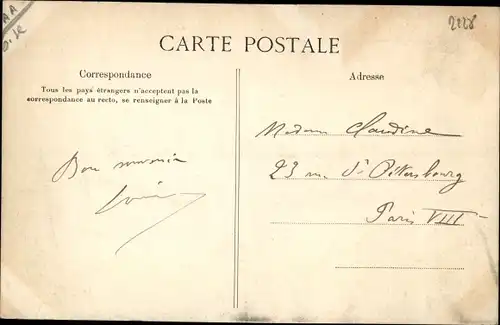 AA
2228
CARTE POSTALE
Correspondance
Tous les pays étrangers n'acceptent pas la
correspondance au recto, se renseigner à la Poste
Bon souvenir
Adresse
Madame Claudine
23 rue St Pétersbourg
Paris VIII